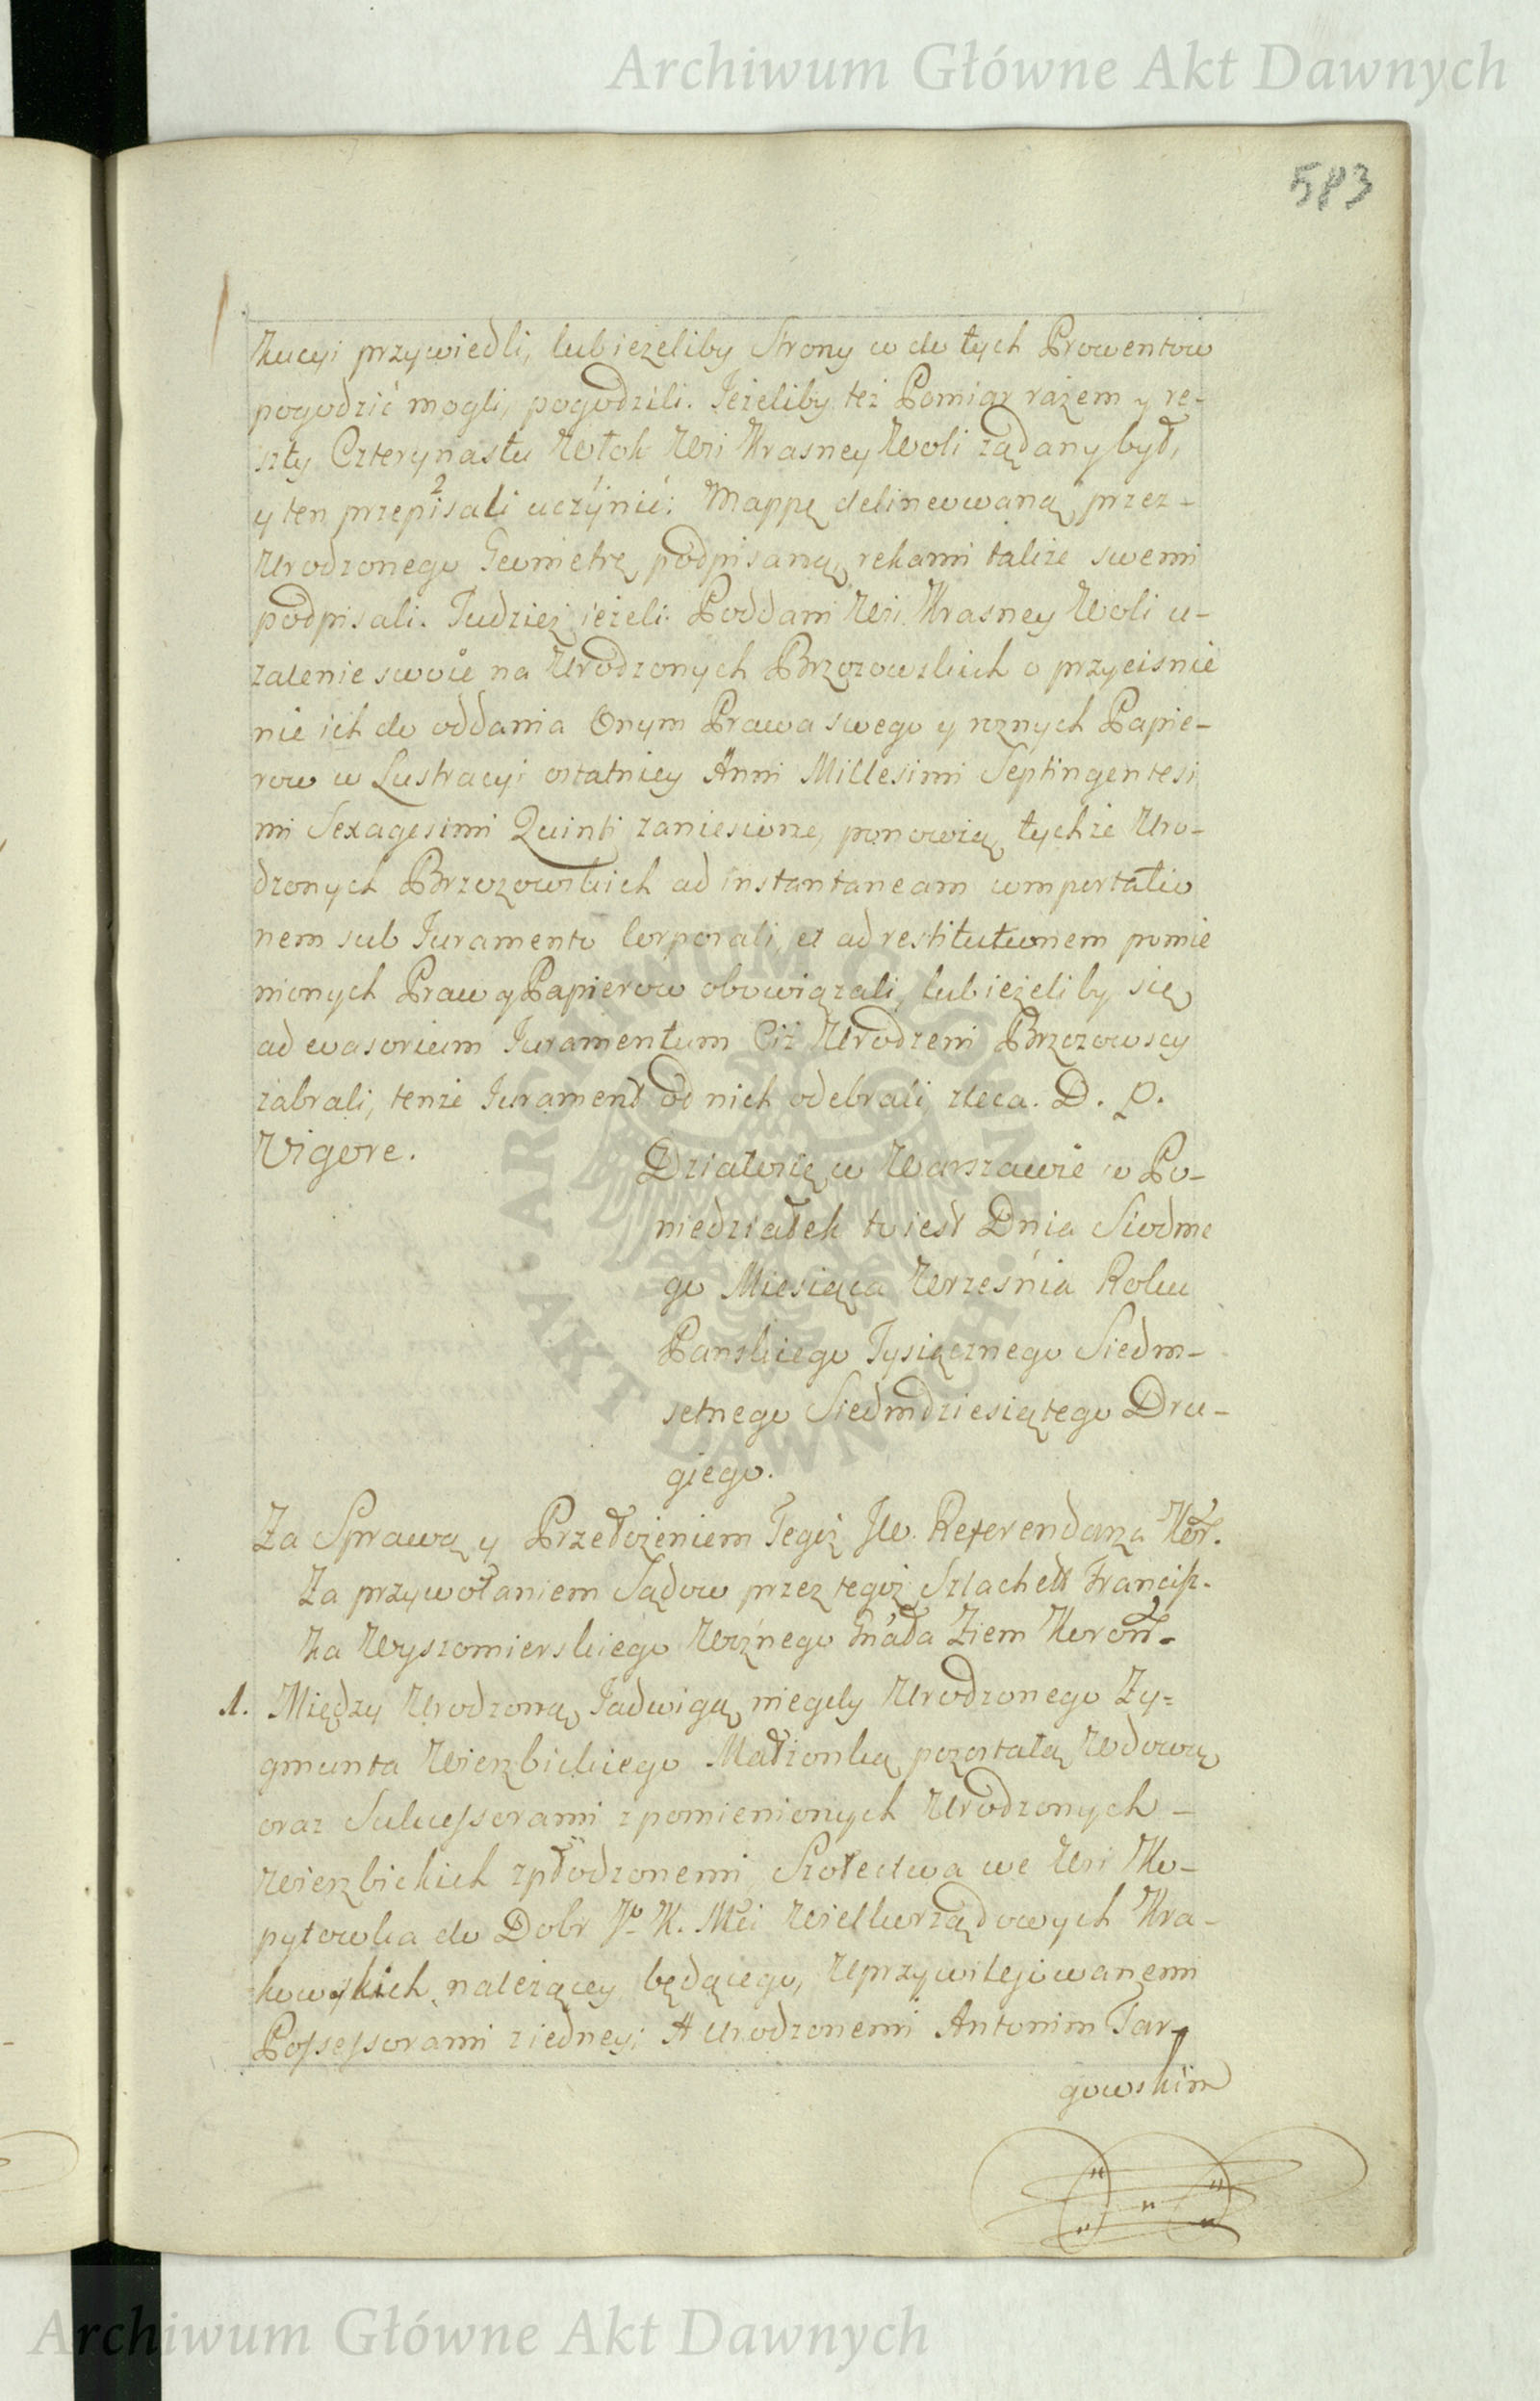 Archiwum Główne Akt Dawnych
583
kucyi przywiedli, lub ieżeliby Strony w do tych Prowentow
pogodzić mogli, pogodzili. Jeżeliby też Pomiar razem y re-
szty Czterynastu Włok Wsi Krasney Woli żądany był,
y ten przepisali uczynić: Mappę delineowaną przez-
Urodzonego Geometrę podpisaną, rekami także swemi
podpisali. Tudzież ieżeli Poddani Wsi Krasney Woli u-
żalenie swoie na Urodzonych Brzozowskich o przycisnie
nie ich do oddania Onym Prawa swego y rożnych Papie-
row w Lustracyi ostatniey Anni Millesimi Septingentesi
mi Sexagesimi Quinti zaniesione, ponowią tychże Uro-
dzonych Brzozowskich ad instantaneam comportatio
nem sub Juramento Corporali, et ad restitutionem pomie
nionych Praw y Papierow obowiązali, lub ieżeliby się
ad evasorium Juramentum Ciż Urodzeni Brzozowscy
zabrali, tenże Jurament od nich odebrali, zleca. D. P.
Vigore.
Działo się w Warszawie w Po-
niedziałek to iest Dnia Siodme
go Miesiąca Września Roku
Panskiego Tysiącznego Siedm-
setnego Siedmdziesiątego Dru-
giego.
Za Sprawą y Przełożeniem Tegoż JW. Referendarza Kor.
Za przywołaniem Sądow przez tegoż Szlachett Francisz-
ka Wyszomierskiego Woźnego Gnãła Ziem Koron.
1. Między Urodzoną Jadwigą niegdy Urodzonego Zy=
gmunta Wierzbickiego Małżonką pozostałą Wdową
oraz Sukcessorami z pomienionych Urodzonych -
Wierzbickich zpłodzonemi, Szołectwa we Wsi Ko-
pytowka do Dobr J. K. Mci Wielkorządowych Kra-
kowskich należącey będącego, Uprzywilejowanemi
Possessorami z iedney; A Urodzonemi Antonim Tar-
gowskim
ARCHIWUM GŁÓWNE · AKT DAWNYCH ·
Archiwum Główne Akt Dawnych